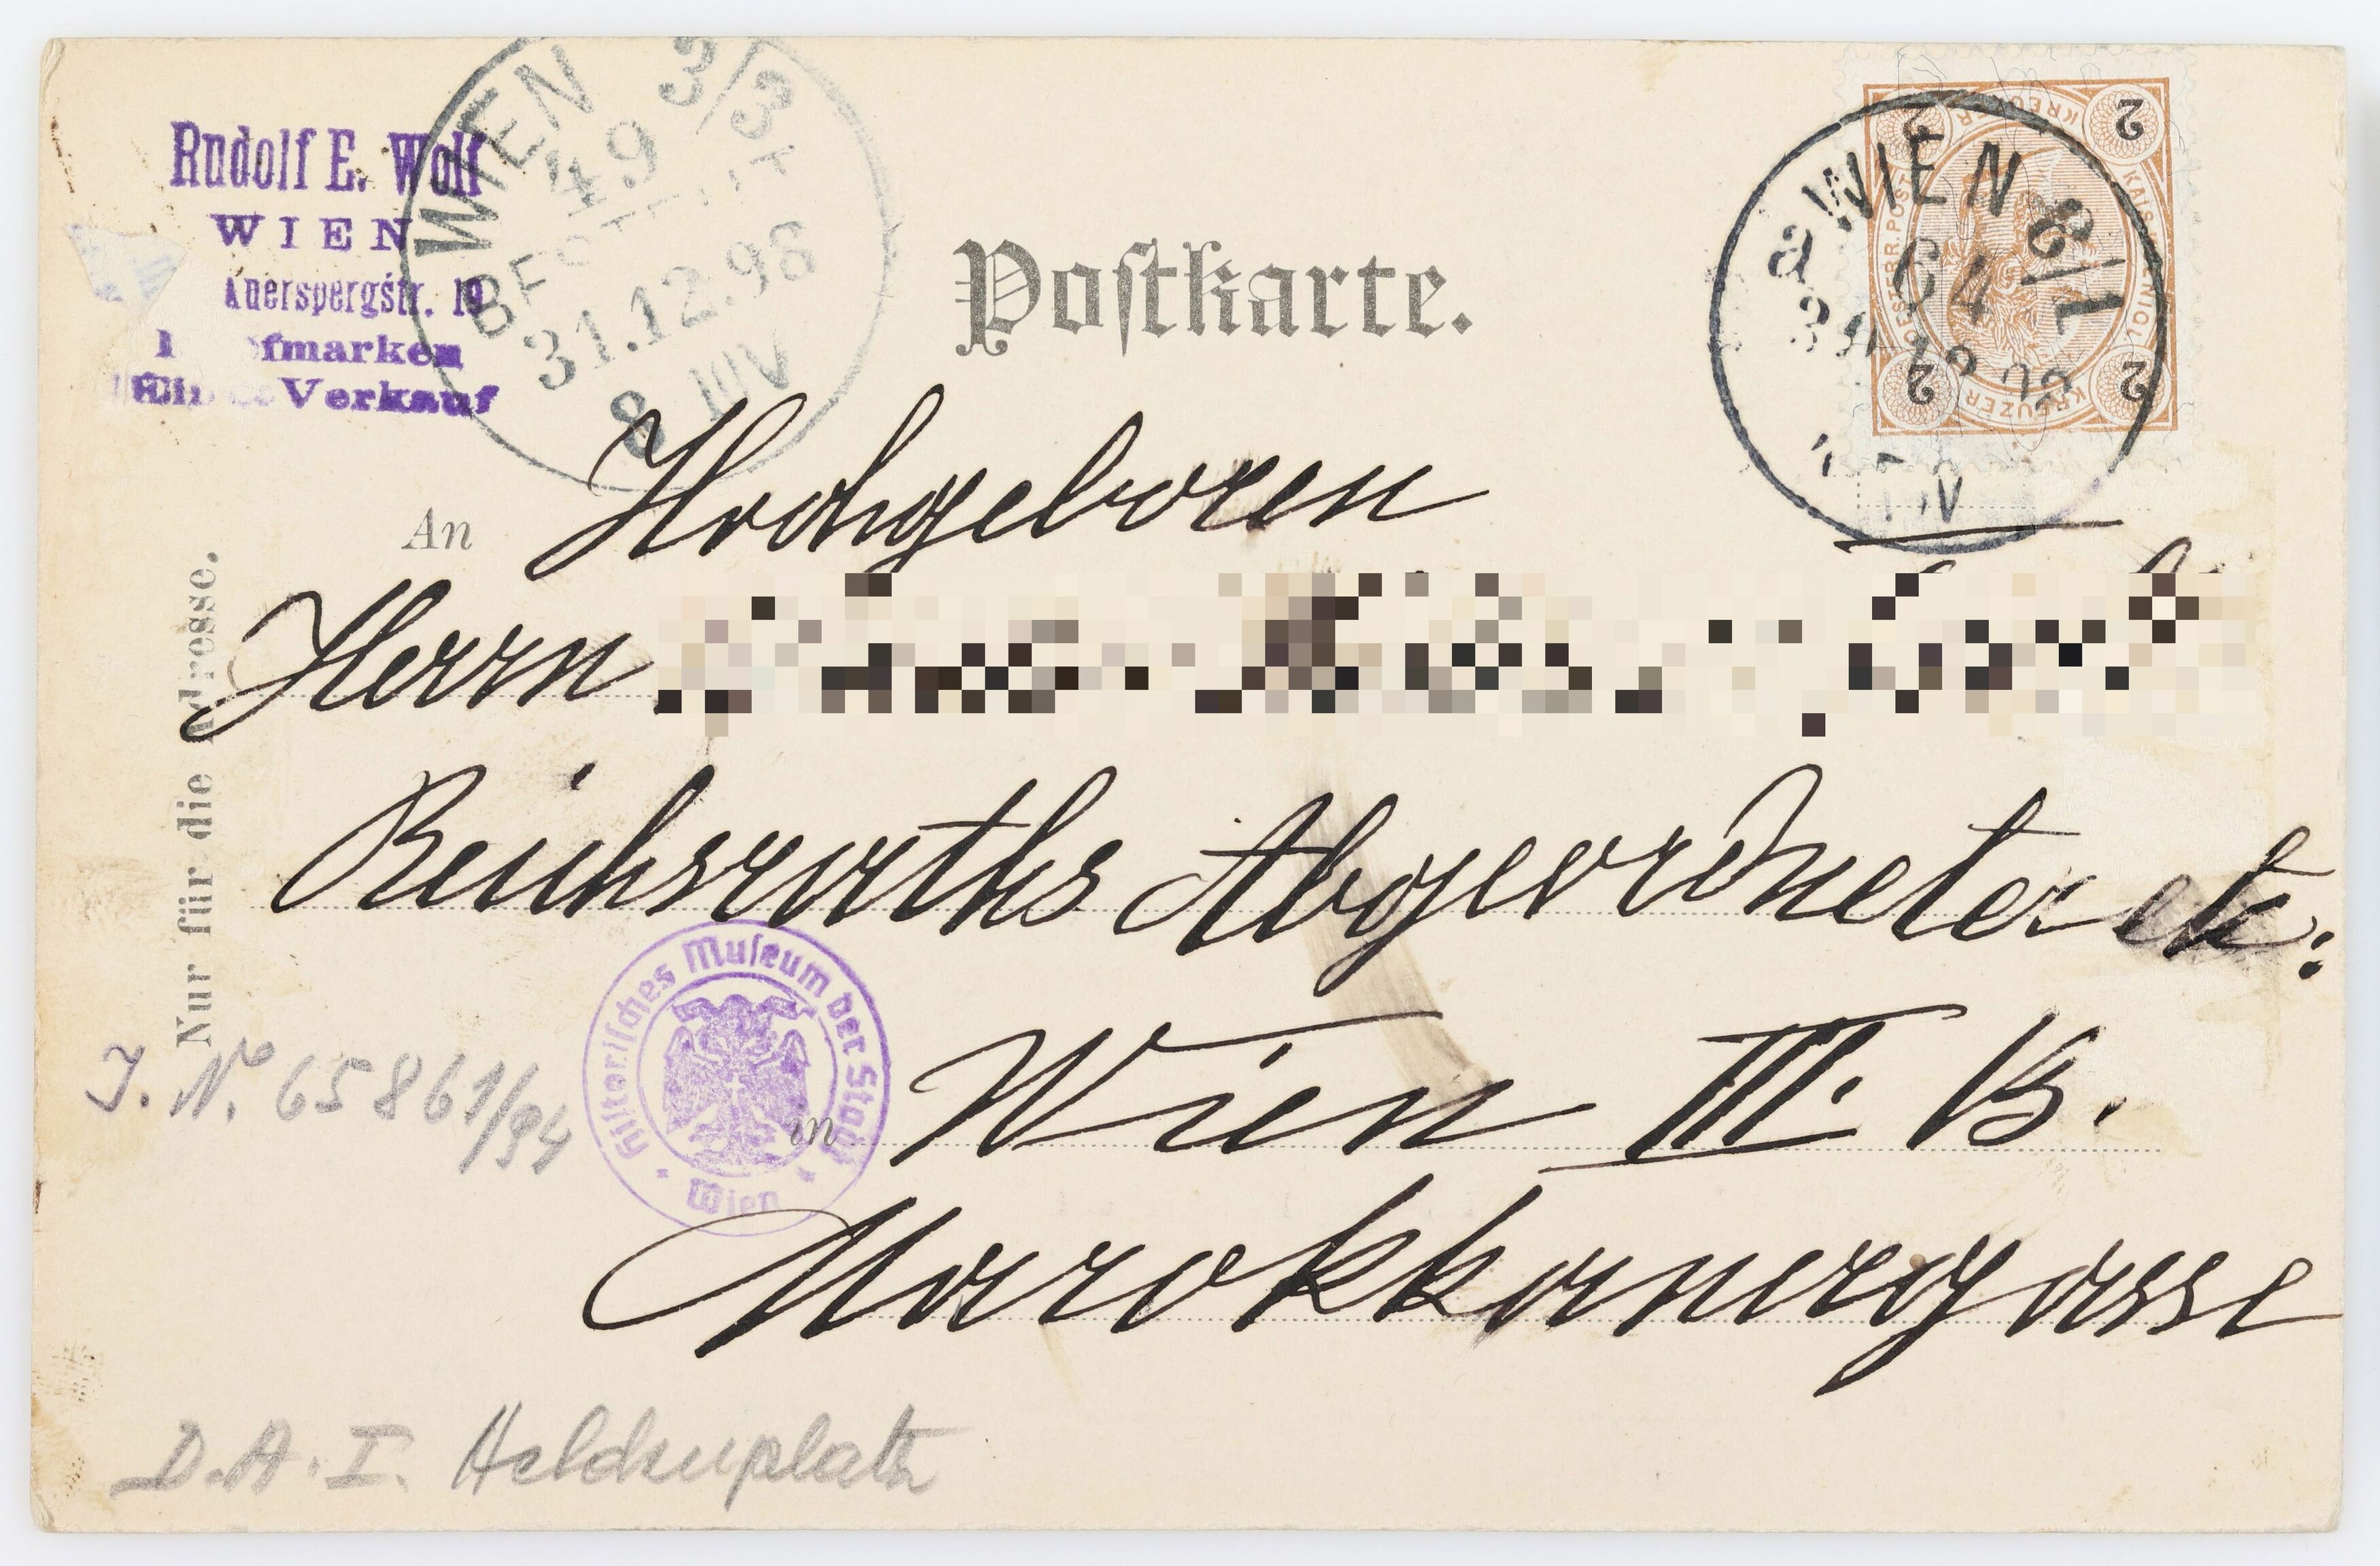 Rudolf E. Wolf
WIEN
Auerspergstr. 19
Verkauf
WIEN 3/3
49
BESTELLT
31.12.98
8 III V
Postkarte.
WIEN 8/1
64
2 KREUZER 2
2 KREUZER 2
An Hochgeboren
Herrn
Reichsraths Abgeordneter etc:
in Wien III. B.
Marokkanergasse
Nur für die Adresse.
Hiſtoriſches Muſeum der Stadt
Wien
J. No 65861/94
D.A.I. Heldenplatz